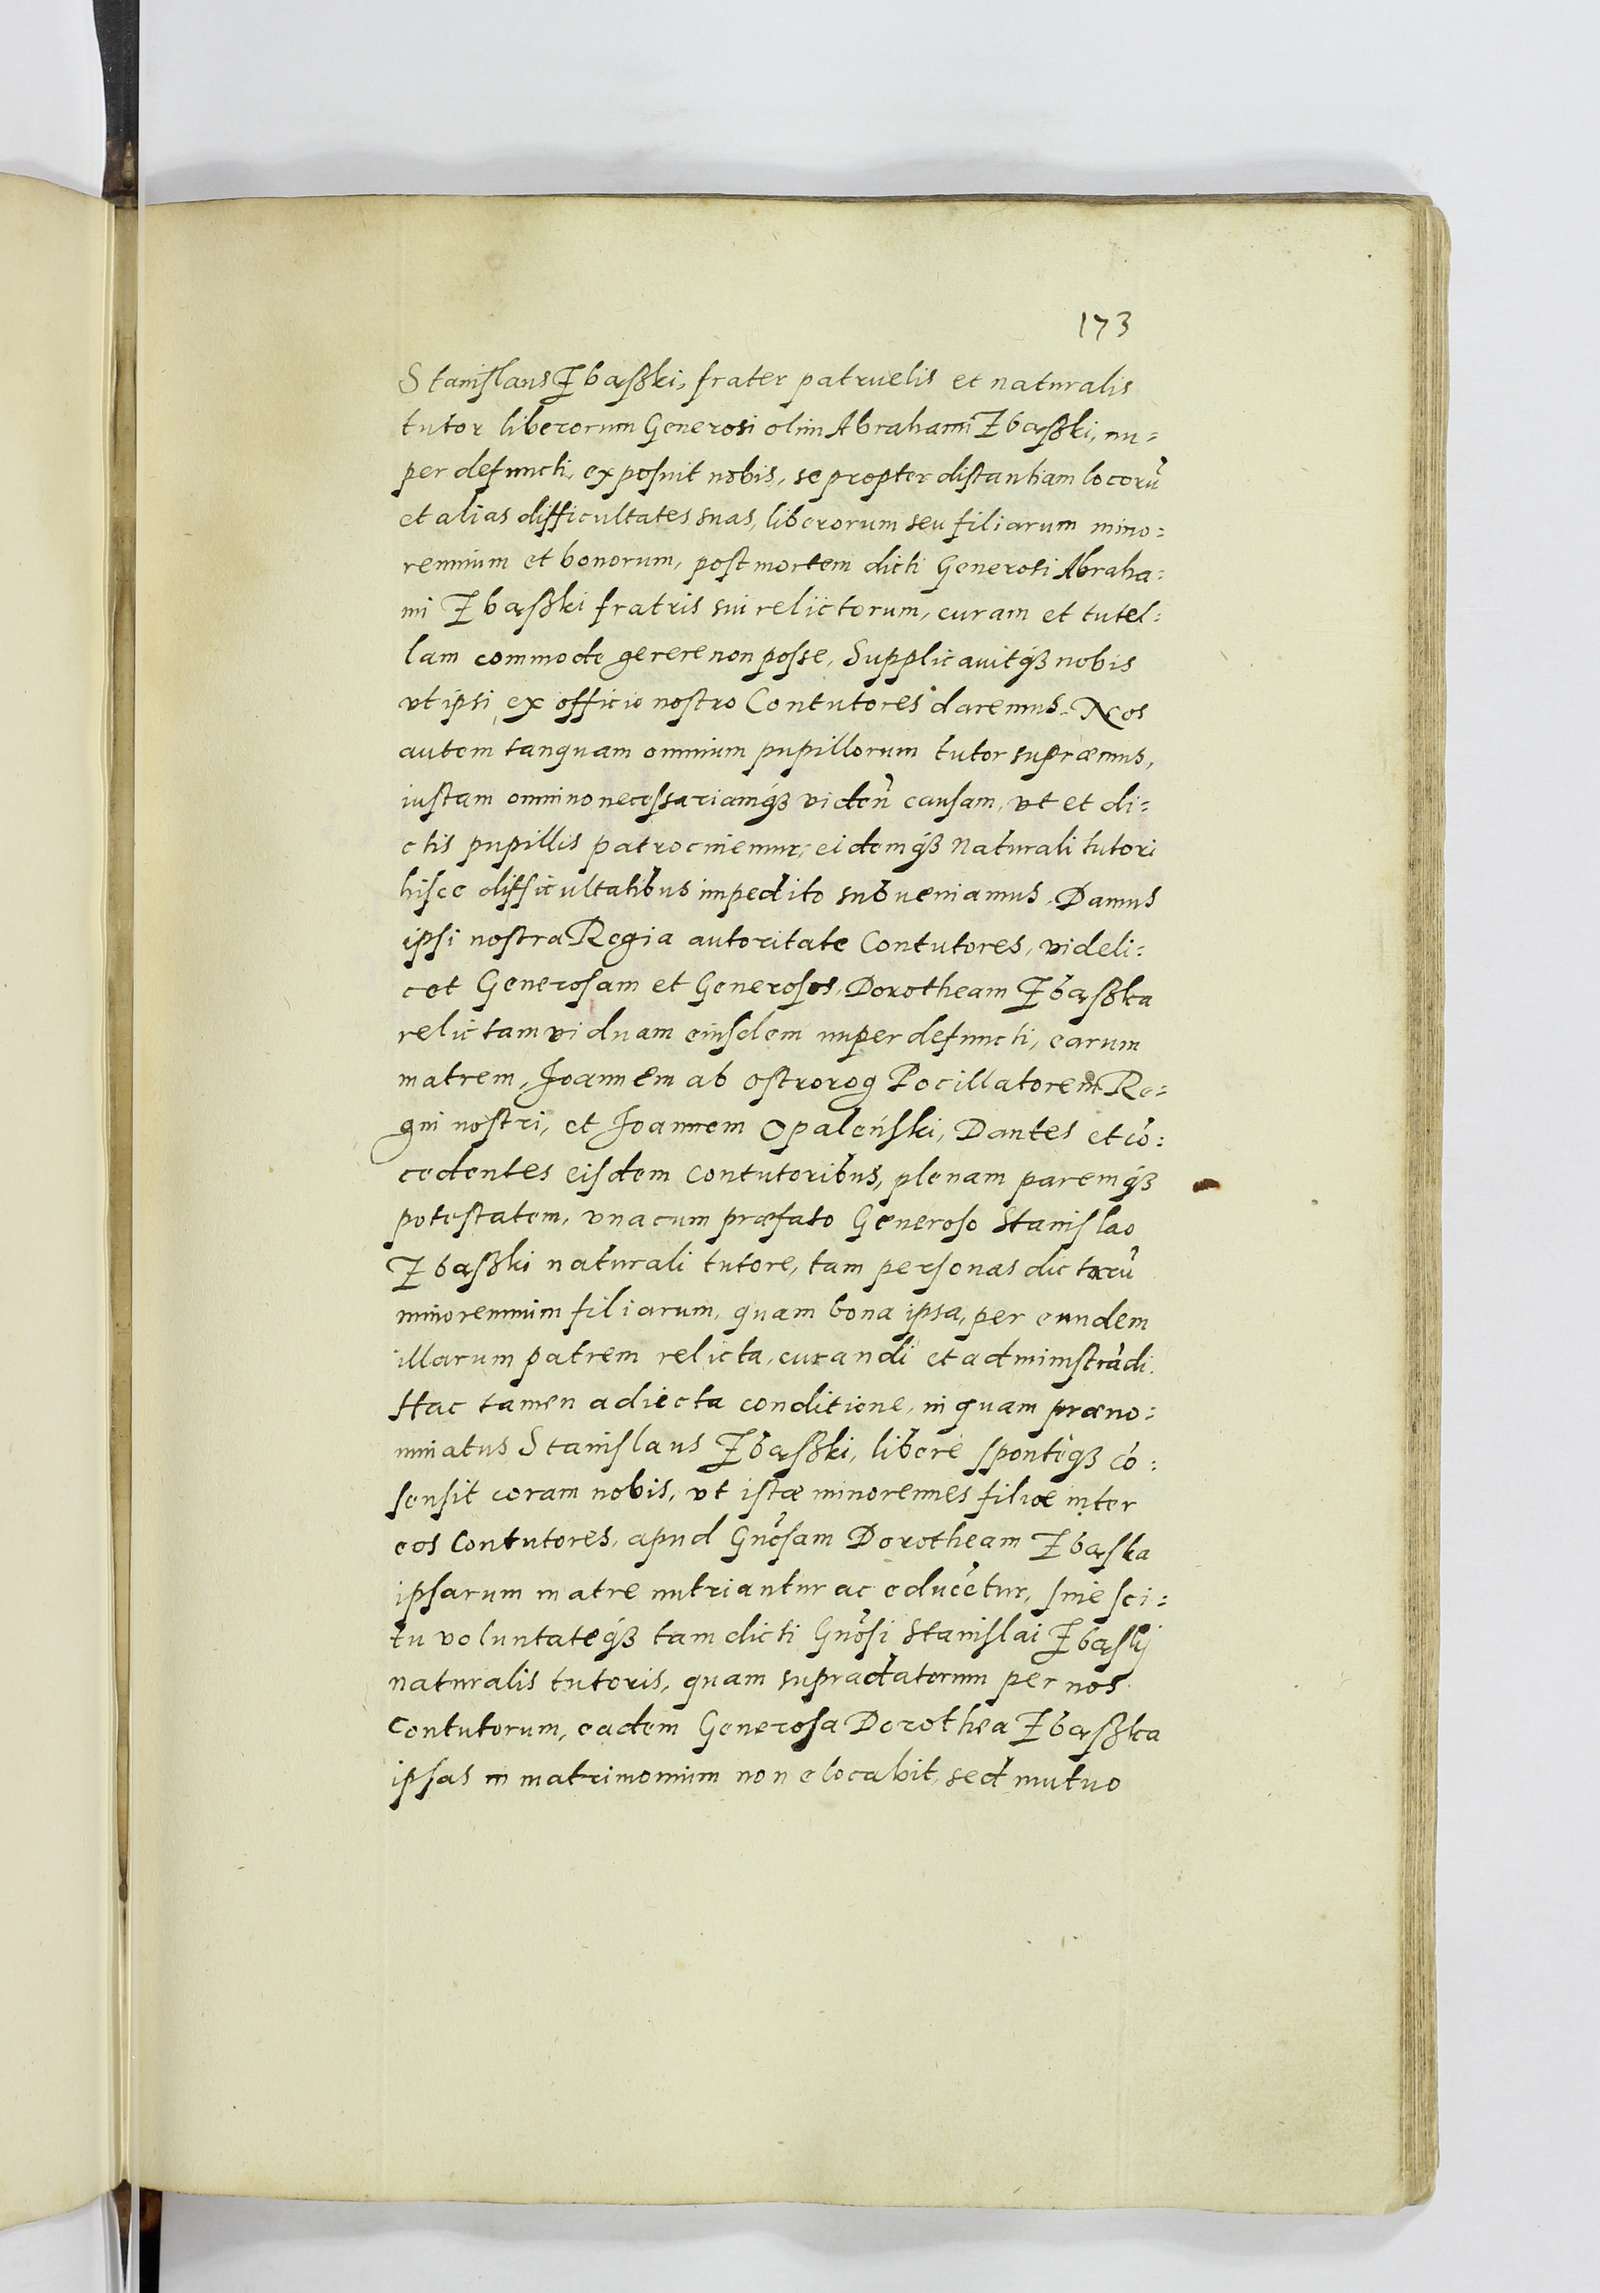 173
Stanislaus Zbąſski, frater patruelis et naturalis
tutor liberorum Generosi olim Abrahami Zbąſski, nu=
per defuncti, exposuit nobis, se propter distantiam locorū
et alias difficultates suas, liberorum seu filiarum mino=
rennium et bonorum, post mortem dicti Generosi Abraha=
mi Zbąſski fratris sui relictorum, curam et tutel=
lam commode gerere non posse, Supplicauitqȝ nobis
vt ipsi ex officio nostro Contutores daremus. Nos
autem tanquam omnium pupillorum tutor supræmus,
iustam omnino necessariamqȝ viden̄ causam, vt et di=
ctis pupillis patrocinemur, eidemqȝ naturali tutori
hisce difficultatibus impedito subueniamus. Damus
ipsi nostra Regia autoritate Contutores, videli=
cet Generosam et Generosos, Dorotheam Zbąſska
relictam viduam eiusdem nuper defuncti, earum
matrem, Joannem ab Ostrorog Pocillatorem Re=
gni nostri, et Joannem Opaleński, Dantes et cō=
cedentes eisdem Contutoribus, plenam paremqȝ
potestatem, vna cum præfato Generoso Stanislao
Zbąſski naturali tutore, tam personas dictarū
minorennium filiarum, quam bona ipsa, per eundem
illarum patrem relicta, curandi et administrādi.
Hac tamen adiecta conditione, in quam præno=
minatus Stanislaus Zbąſski, libere sponteqȝ cō=
sensit coram nobis, vt istæ minorennes filiæ inter
eos Contutores, apud Gn̄osam Dorotheam Zbąska
ipsarum matre nutriantur ac educētur, sine sci=
tu voluntateqȝ tam dicti Gn̄osi Stanislai Zbąſkij
naturalis tutoris, quam supradatorum per nos
Contutorum, eadem Generosa Dorothea Zbąſska
ipsas in matrimonium non elocabit, sed mutuo